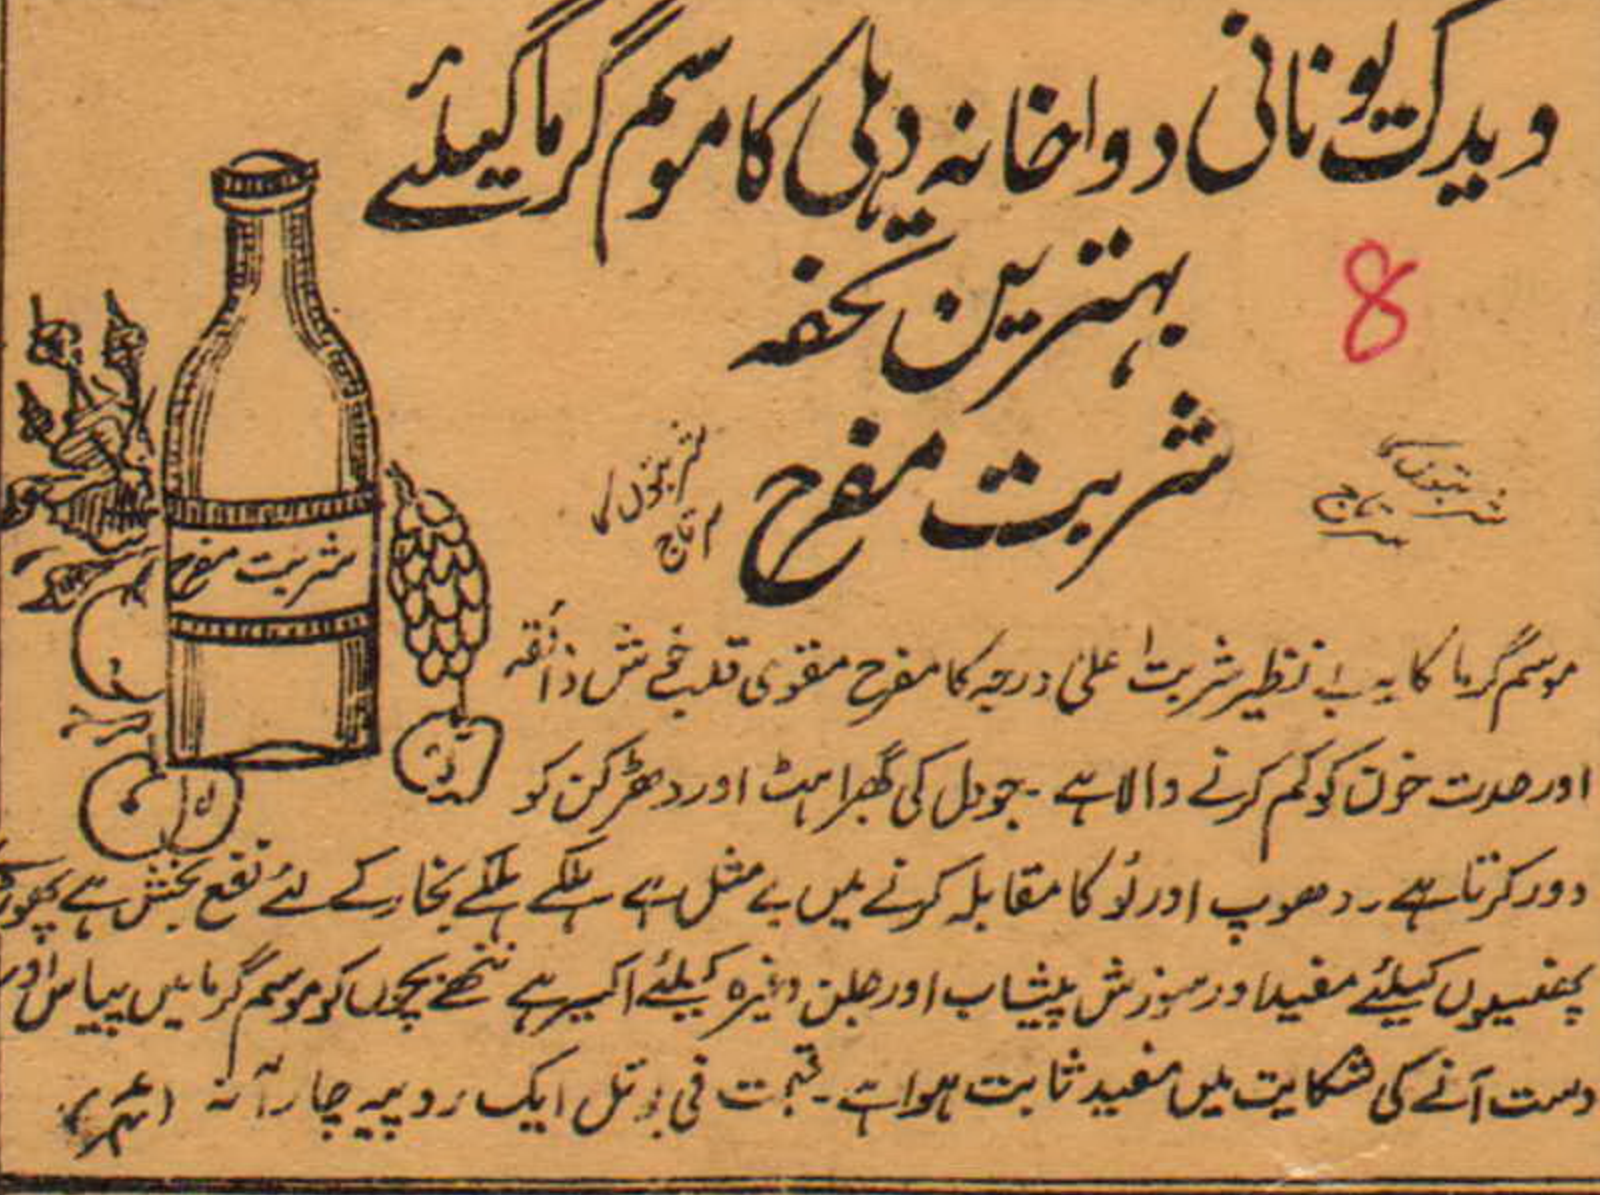 ویدک یونانی دواخانہ دہلی کا موسم گرما کیلئے
8
بہترین تحفہ
شربتوں کا سرتاج
شربت مفرح
شربتوں کا سرتاج
شربت مفرح
موسم گرما کا یہ بے نظیر شربت اعلیٰ درجہ کا مفرح مقوی قلب خوش ذائقہ
اور حدت خون کو کم کرنے والا ہے ۔ جو دل کی گھبراہٹ اور دھڑکن کو
دور کرتا ہے ۔ دھوپ اور لُو کا مقابلہ کرنے میں بے مثل ہے ہلکے ہلکے بخار کے لئے نفع بخش ہے
پھنسیوں کیلئے مفید اور سوزش پیشاب اور جلن وغیرہ کیلئے اکسیر ہے ننھے بچوں کو موسم گرما میں پیاس اور
دست آنے کی شکایت میں مفید ثابت ہوا ہے ۔ قیمت فی بوتل ایک روپیہ چار آنہ